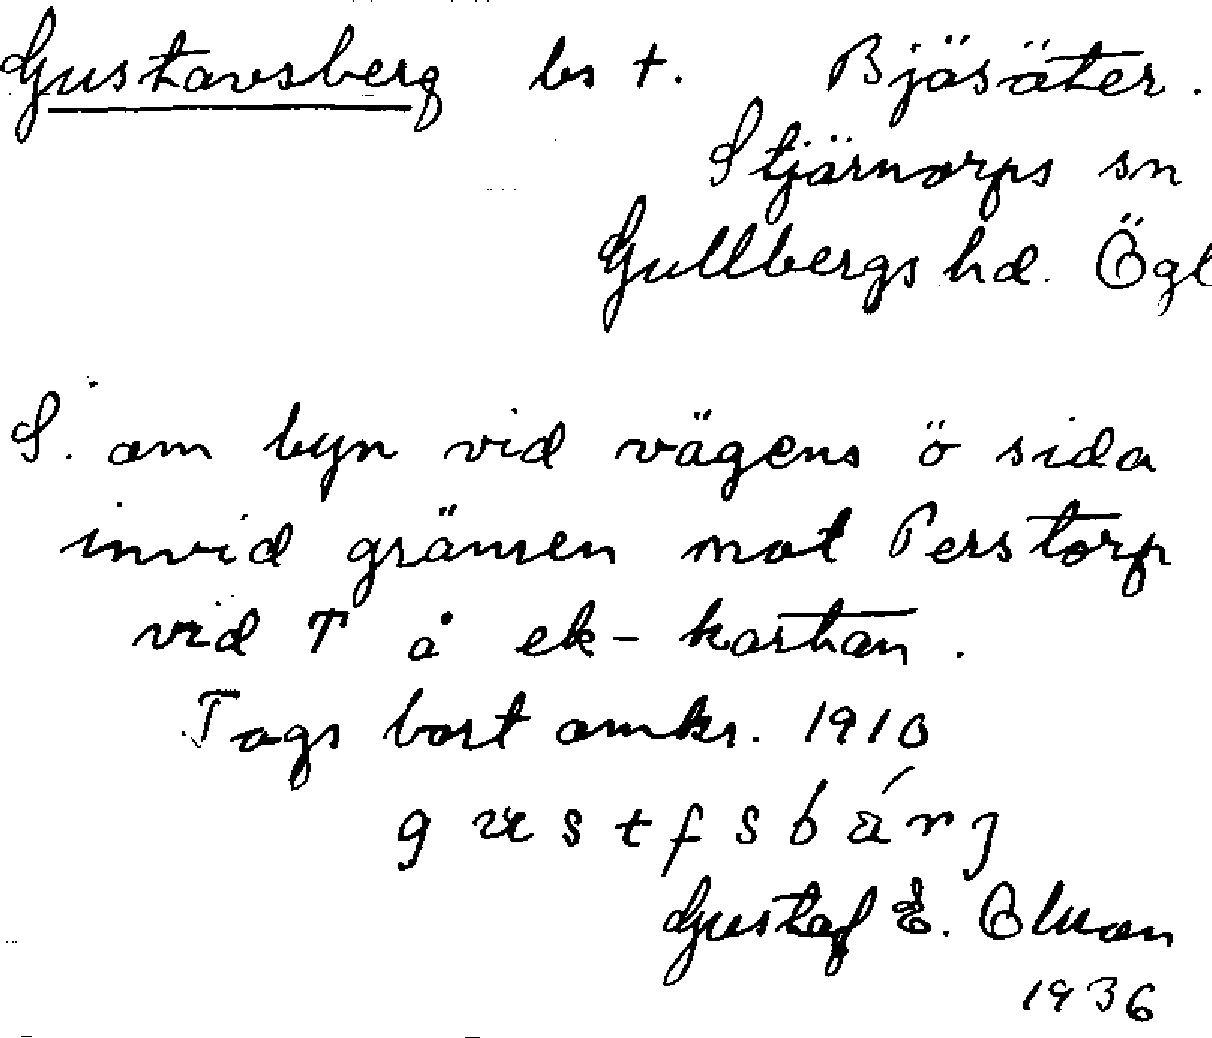 Gustavsberg bs t. Bjäsäter.
Stjärnorps sn
Gullbergs hd. Ögl
S. om byn vid vägens ö sida
invid gränsen mot Perstorp
vid T å ek-kartan.
Togs bort omkr. 1910
gustfsbárj
Gustaf E. Olsson
1936